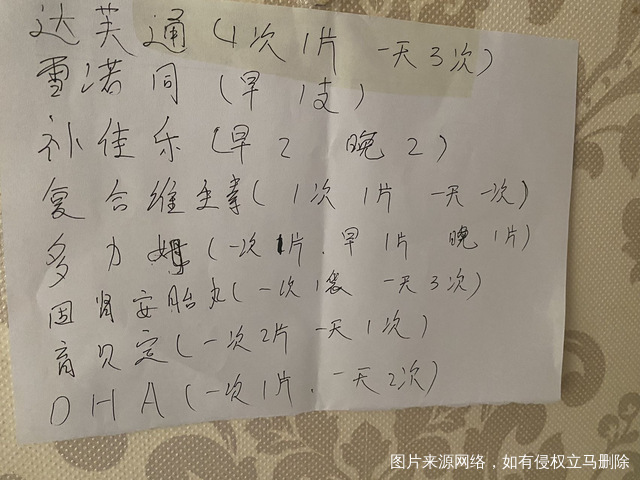 达芙通（1次1片 一天3次）
雪诺同（早 1支）
补佳乐（早2 晚2）
复合维生素（1次1片 一天一次）
多力姆（一次1片．早1片 晚1片）
固肾安胎丸（一次1袋 一天3次）
育贝定（一次2片 一天1次）
DHA（一次1片．一天2次）
图片来源网络，如有侵权立马删除